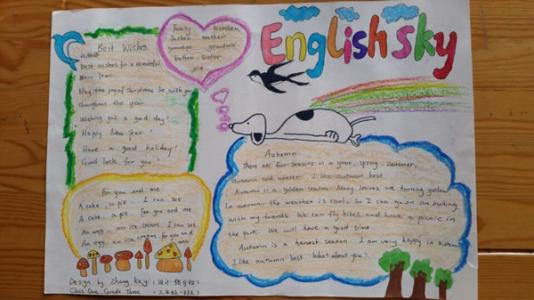 English sky
Best Wishes
Best wishes for a wonderful
New Year.
May the joy of Christmas be with you
throughout the year.
Wishing you a good day!
Happy New Year!
Have a good holiday!
Good luck for you!
family
father mother
grandpa grandma
brother sister
For you and me
A cake, a pie. I can see
A cake, a pie. For you and me
An egg, an ice cream. I can see
An egg, an ice cream. For you and
me
Autumn
There are four seasons in a year, spring, summer,
autumn and winter. I like autumn best.
Autumn is a golden season. Many leaves are turning yellow.
In autumn, the weather is cool. So I can go on an outing
with my friends. We can fly kites and have a picnic in
the park. We will have a good time.
Autumn is a harvest season. I am very happy in autumn.
I like autumn best. What about you?
Design by Zhang
Class One, Grade Three